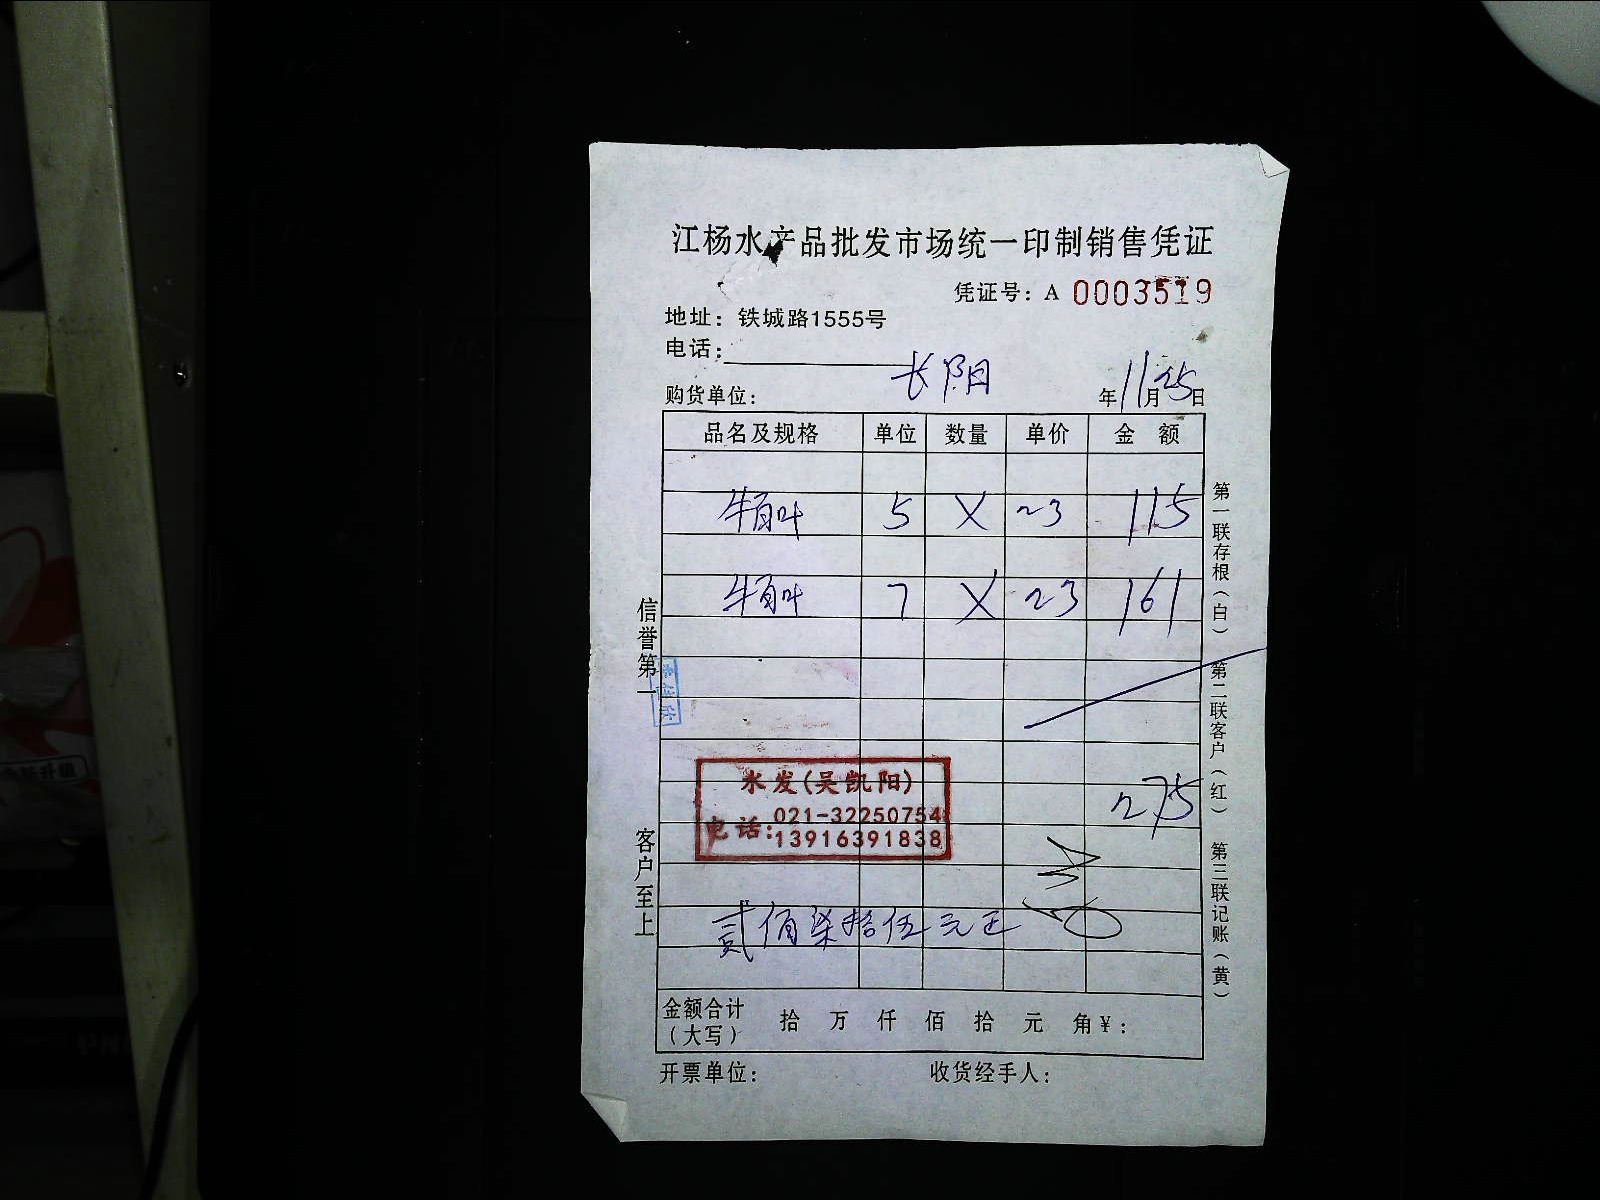 江杨水产品批发市场统一印制销售凭证
凭证号：A 0003519
地址：铁城路1555号
电话：
长阳
购货单位：
年11月25日
品名及规格 单位 数量 单价 金 额
牛百叶 5 X 23 115
牛百叶 7 X 23 161
275
水发(吴凯阳)
电话:021-32250754
13916391838
贰佰柒拾伍元正
金额合计（大写） 拾 万 仟 佰 拾 元 角¥：
开票单位： 收货经手人：
信誉第一
客户至上
第一联存根（白）
第二联客户（红）
第三联记账（黄）